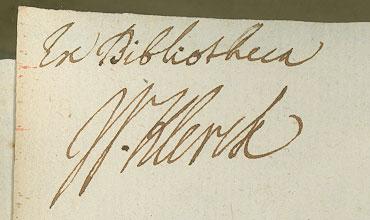 Ex Bibliotheca
W. Herck